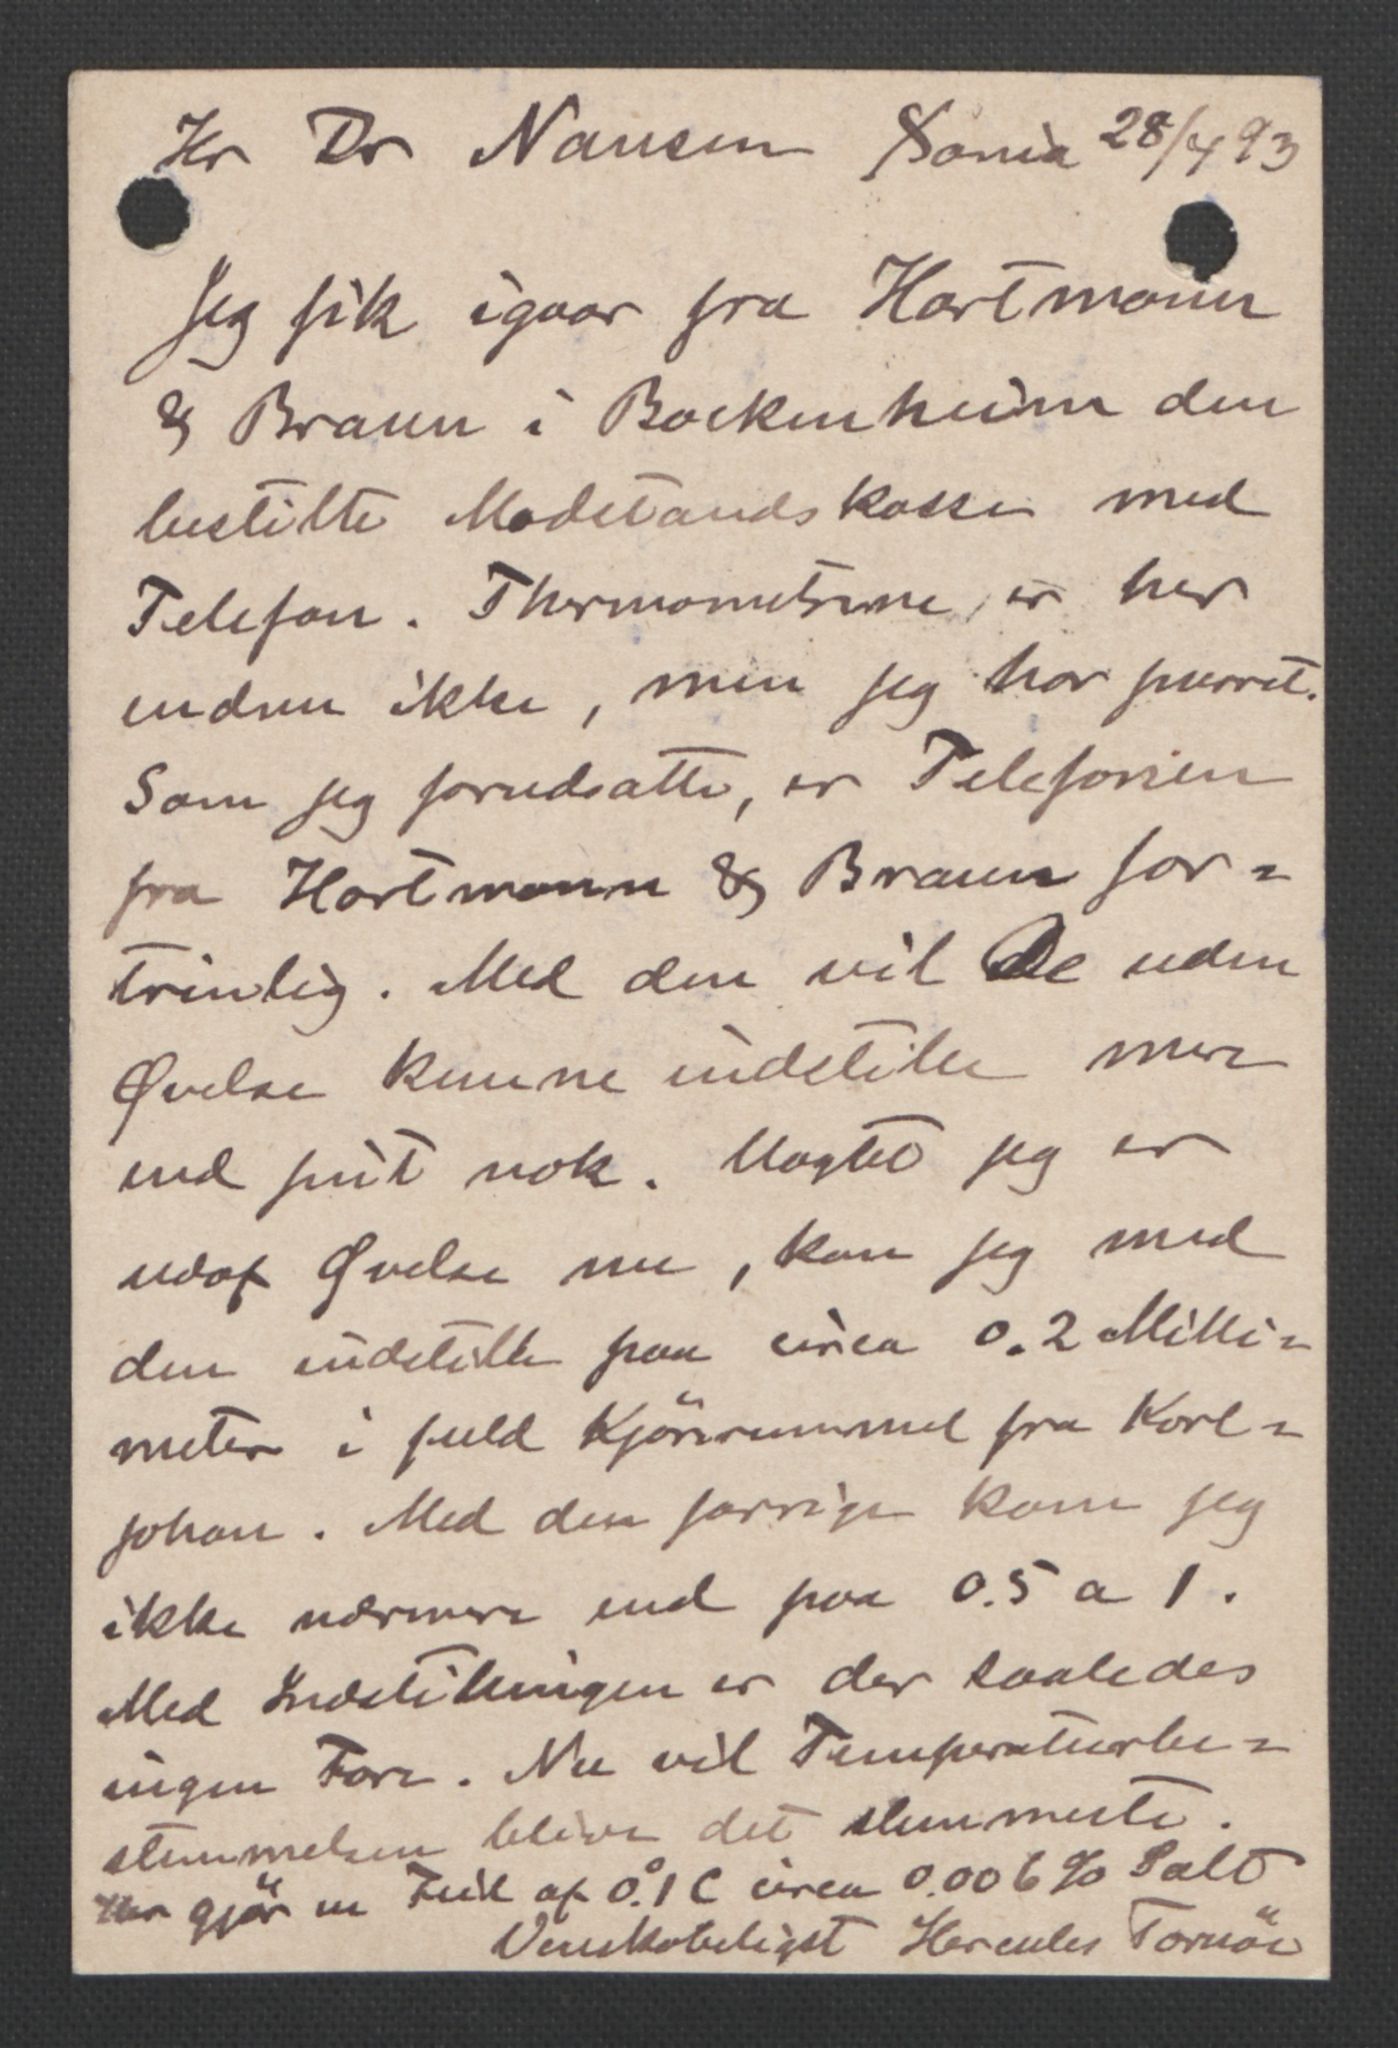 Hr Dr Nansen Xania 28/4 93
Jeg fik igaar fra Hartmann
& Braun i Bockenheim den
bestilte Modstandskasse med
Telefon. Thermometrene er her
endnu ikke, men jeg har purret.
Som jeg forudsatte, er Telefonen
fra Hartmann & Braun for=
trinlig. Med den vil De uden
Øvelse kunne indstille mere
end fint nok. Uagtet jeg er
udaf Øvelse nu, kan jeg med
den indstille paa circa 0.2 Milli=
meter i fuld Kjörerummel fra Karl=
johan. Med den forrige kom jeg
ikke nærmere end paa 0.5 a 1.
Med Indstillingen er der saaledes
ingen Fare. Nu vil Temperaturbe=
stemmelsen blive det slemmeste.
Her gjör en Feil af 0.°1 C circa 0.006 % Salt
Venskabeligst Hercules Tornöe